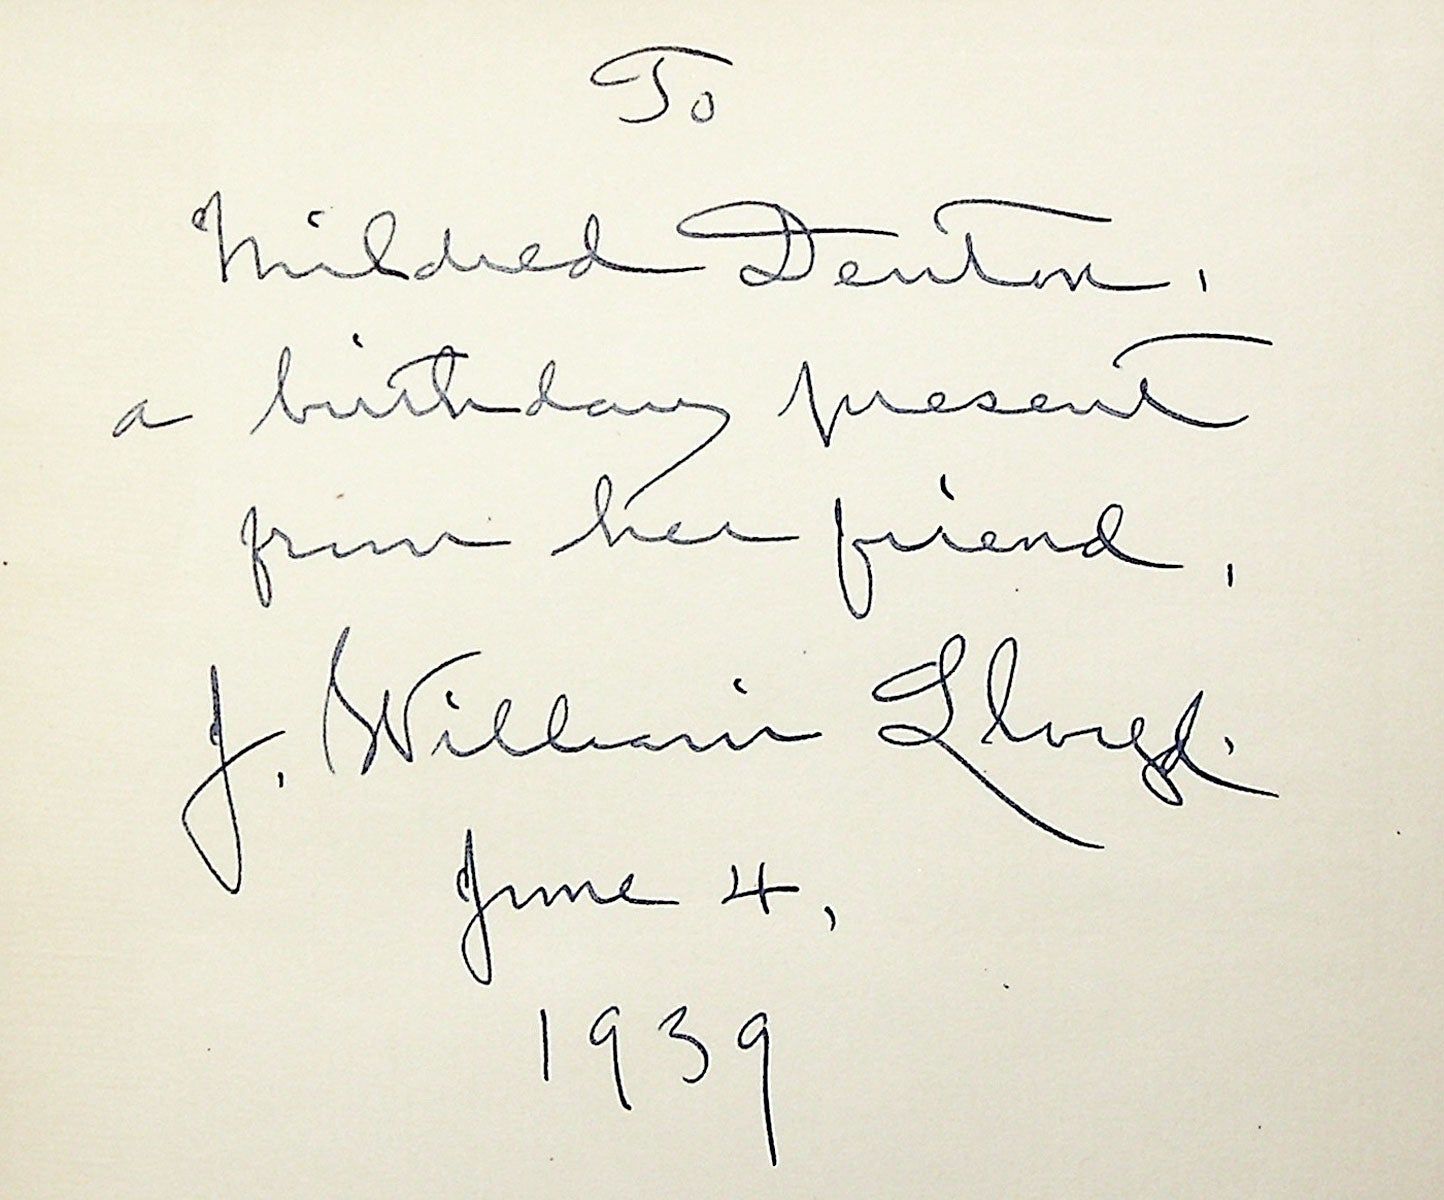 To
Mildred Denton,
a birthday present
from her friend,
J. William Lloyd.
June 4,
1939